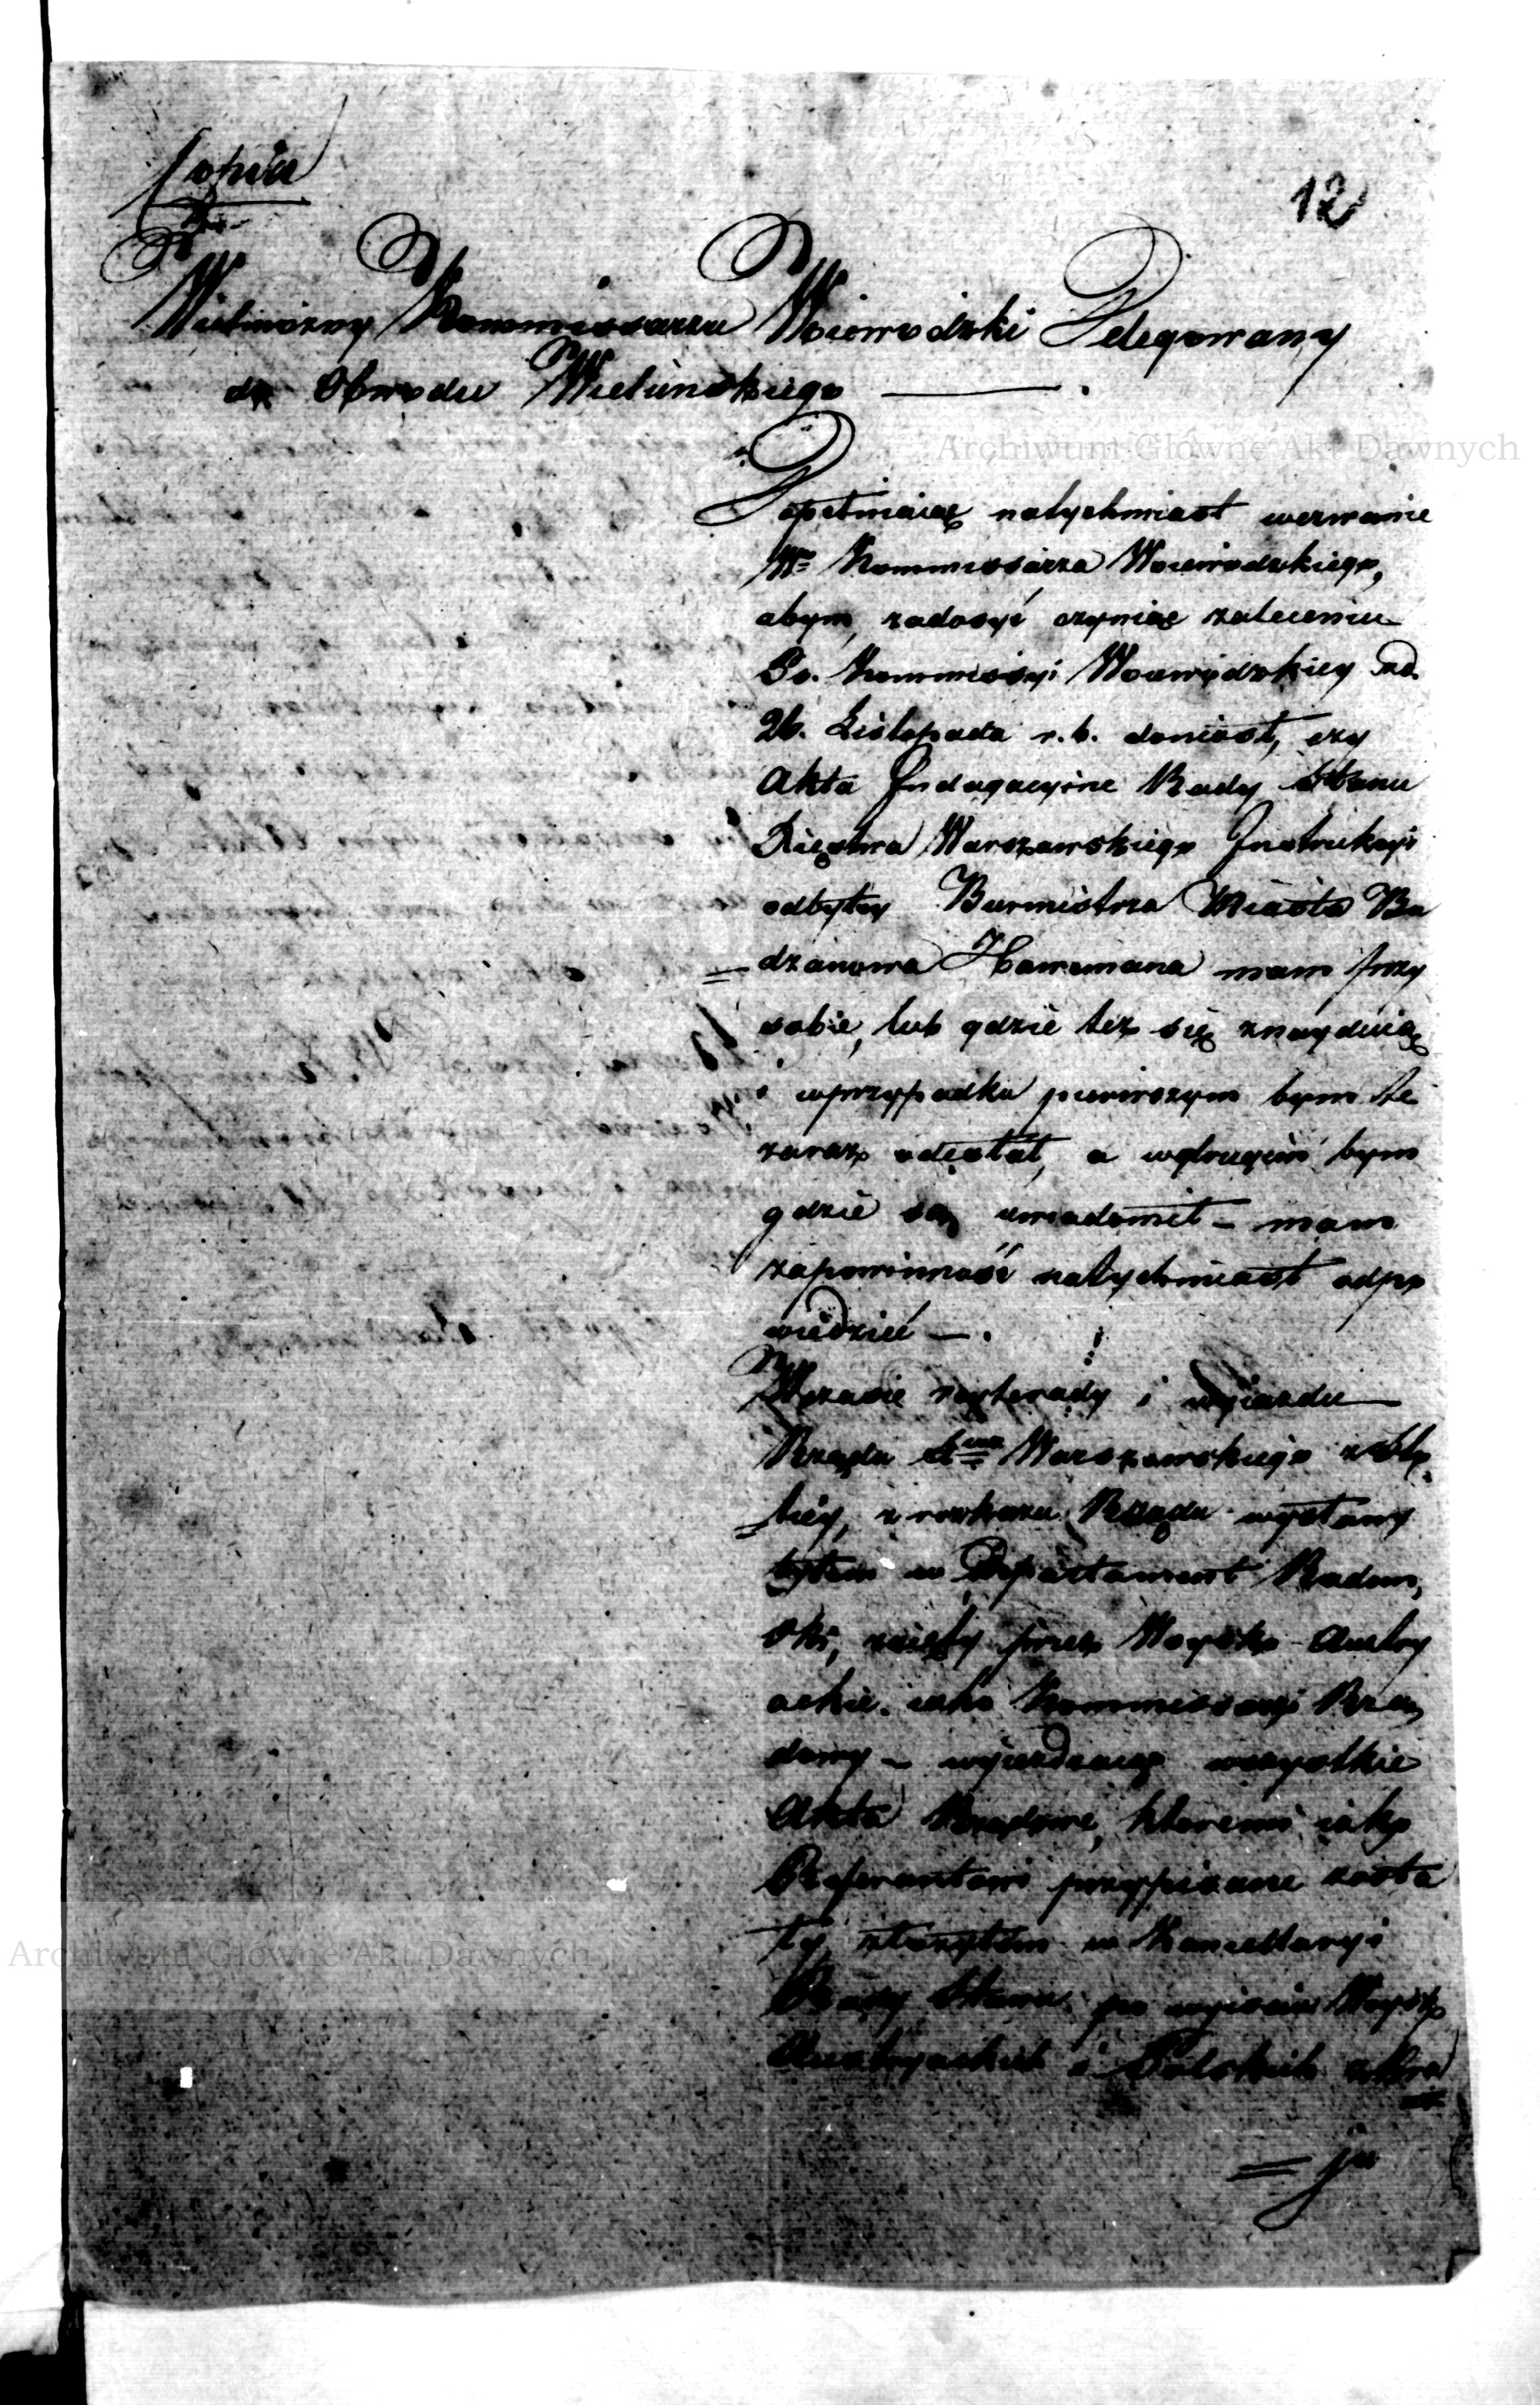 Kopia
12
Wielmożny Kommissarzu Woiewodzki Delegowany
do Obwodu Wieluńskiego —.
Archiwum Główne Akt Dawnych
Dopełniaiąc natychmiast wezwanie
Wo Kommissarza Woiewodzkiego,
abym, zadosyć czyniąc zaleceniu
Kommissyi Woiewodzkiey
26. Listopada r. b. doniosł, czy
Akta Indagacyine Rady Stanu
Xięstwa Warszawskiego Instrukcyi
odbytey Burmistrza Miasta Bu
dzanowa mam przy
sobie, lub gdzie też się znayduią
i wprzypadku pierwszym bym te
zaraz odesłał, a wdrugim bym
gdzie są uwiadomił – mam
zapowinność natychmiast odpo
wiedzieć —.
Wczasie reyterady i wyiazdu
Rządu Warszawskiego
z rozkazu Rządu wysłany
byłem w Departament Radom,
ski, zaięty przez Woysko Austry
ackie. iako Kommissarz Rzą,
dowy – wyieżdżaiąc wszystkie
Akta Rządowe, ktoremi iako
Referentowi przypisane zosta
ły, złożyłem w Kancellaryi
Rady Stanu. po wyiściu Woysk
Austryackich i Polskich zkra
= ju
Archiwum Główne Akt Dawnych